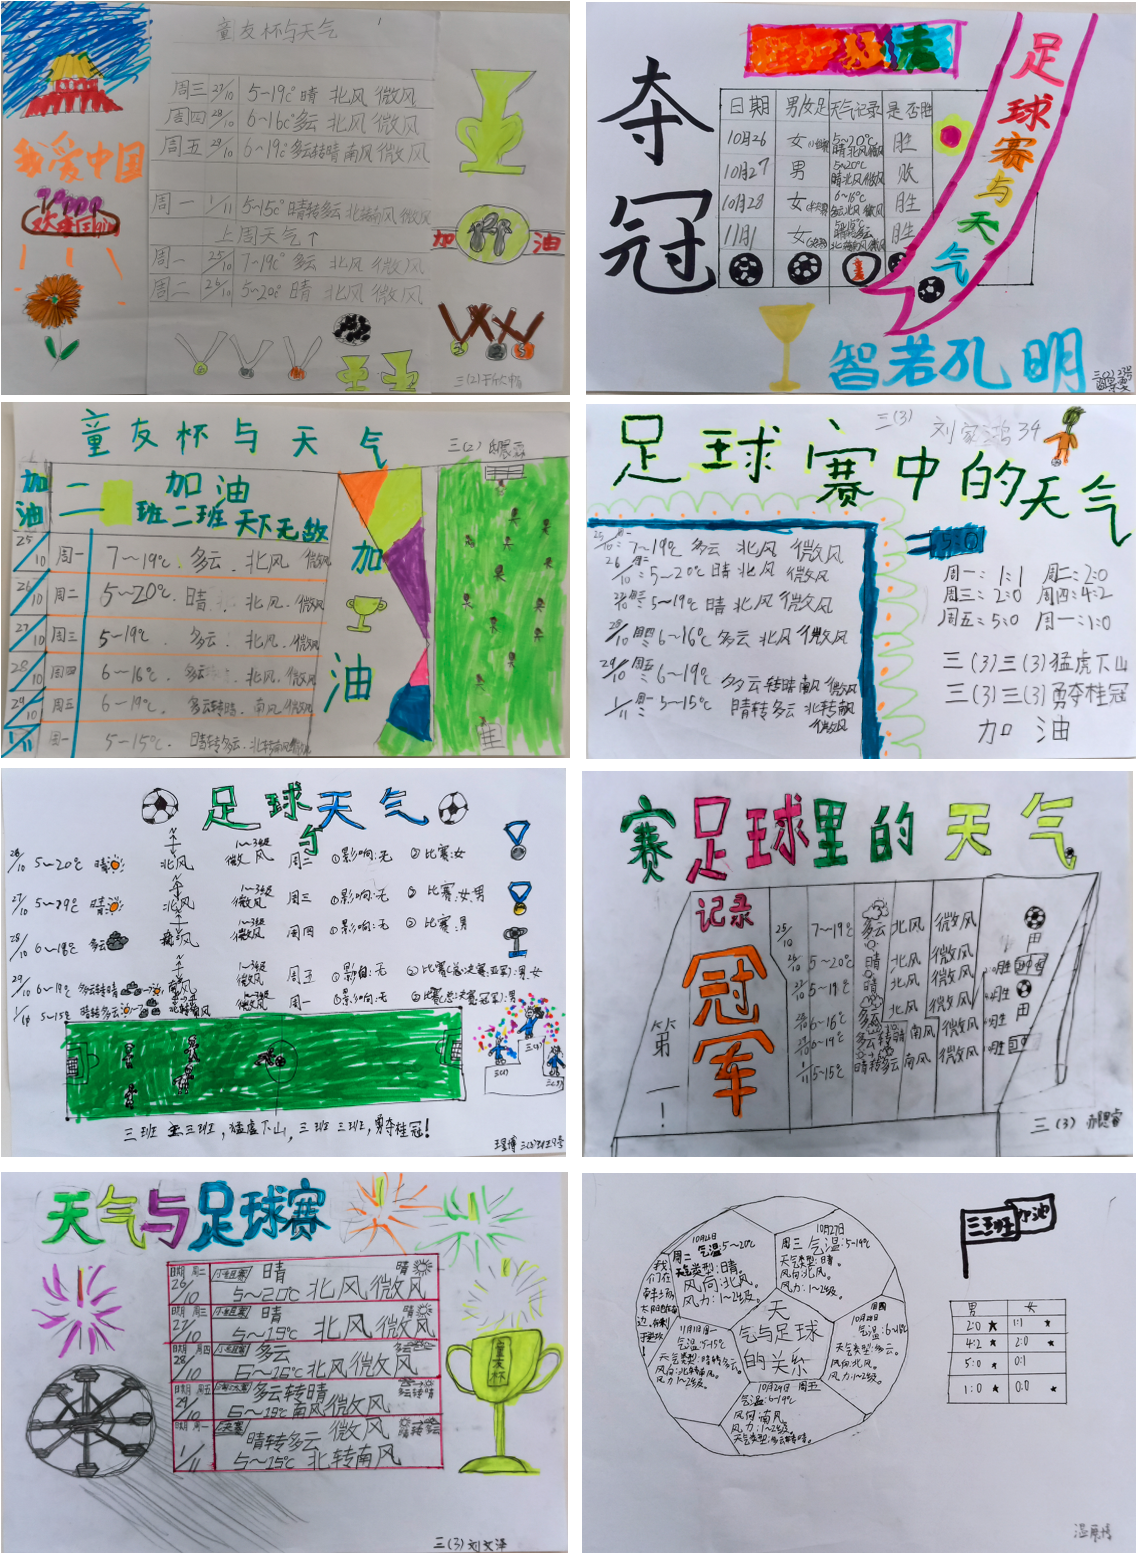 童友杯与天气
周三 27/10 5~19℃ 晴 北风 微风
周四 28/10 6~16℃ 多云 北风 微风
周五 29/10 6~19℃ 多云转晴 南风 微风
周一 1/11 5~15℃ 晴转多云 北转南风 微风
上周天气↑
周一 25/10 7~19℃ 多云 北风 微风
周二 26/10 5~20℃ 晴 北风 微风
我爱中国
加 油
三(2)
夺冠
足球赛与天气
日期 男/女足 天气记录 是否胜
10月26 女 5~20℃ 晴 北风 微风 胜
10月27 男 5~20℃ 晴 北风 微风 败
10月28 女 6~16℃ 多云 北风 微风 胜
11月1 女 胜
智若孔明
童友杯与天气
三(2)
加油
二班二班天下无敌
加油
25/10 周一 7~19℃. 多云 北风 微风
26/10 周二 5~20℃. 晴. 北风. 微风
27/10 周三 5~19℃. 多云. 北风. 微风
28/10 周四 6~16℃. 多云. 北风. 微风
29/10 周三 6~19℃. 多云转晴. 南风. 微风
1/11 周一 5~15℃. 晴转多云. 北转南风
加油
三(3) 34
足球赛中的天气
25/10 周一: 7~19℃ 多云 北风 微风
26/10 周二: 5~20℃ 晴 北风 微风
5~19℃ 晴 北风 微风
28/10 周四: 6~16℃ 多云 北风 微风
29/10 周五: 6~19℃ 多云转晴 南风 微风
1/11 周一: 5~15℃ 晴转多云 北转南风 微风
周一: 1:1 周二: 2:0
周三: 2:0 周四: 4:2
周五: 5:0 周一: 1:0
三(3)三(3)猛虎下山
三(3)三(3)勇夺桂冠
加油
足球与天气
26/10 5~20℃ 晴 北风 1~3级 微风 周二 ①影响:无 ②比赛:女
27/10 晴 北风 1~3级 微风 周三 ①影响:无 ②比赛:女,男
28/10 多云 1~3级 微风 周四 ①影响:无 ②比赛:男
29/10 6~19℃ 多云转晴 南风 1~3级 微风 周五
5~15℃ 晴转多云 微风 周一 ①影响:无
三班 三班,猛虎下山,三班三班,勇夺桂冠!
赛足球里的天气
记录
冠军
第一!
25/10 7~19℃ 多云 北风 微风
26/10 5~20℃ 晴 北风 微风
27/10 5~19℃ 晴 北风 微风
6~16℃ 多云 北风 微风
6~19℃ 多云转晴 南风 微风
1/11 5~15℃ 晴转多云 南风 微风
三(3)
天气与足球赛
日期 周二 26/10 晴 5~20℃ 北风 微风 晴
日期 周三 27/10 晴 5~19℃ 北风 微风 晴
日期 周四 28/10 多云 6~16℃ 北风 微风
日期 周五 29/10 多云转晴 6~19℃ 南风 微风
日期 周一 1/11 晴转多云 微风 5~15℃ 北转南风
童友杯
三(3) 刘文泽
三班加油
10月26日 周二 气温:5~20℃
天气类型:晴。
风向:北风。
风力:1~2级。
10月27日
周三 气温:5~19℃
天气类型:晴。
风向:北风。
风力:1~2级。
天气与足球的关系
周四
气温:6~16℃
天气类型:多云。
风向:北风。
风力:1~2级。
11月1日 周一
气温:5~15℃
天气类型:晴转多云。
风向:北转南风。
风力:1~2级。
10月29日 周五
气温:6~19℃
风向:南风。
风力:1~2级。
天气类型:多云转晴。
男 女
2:0 ★ 1:1 ★
4:2 ★ 2:0 ★
5:0 ★ 0:1
1:0 ★ 0:0 ★